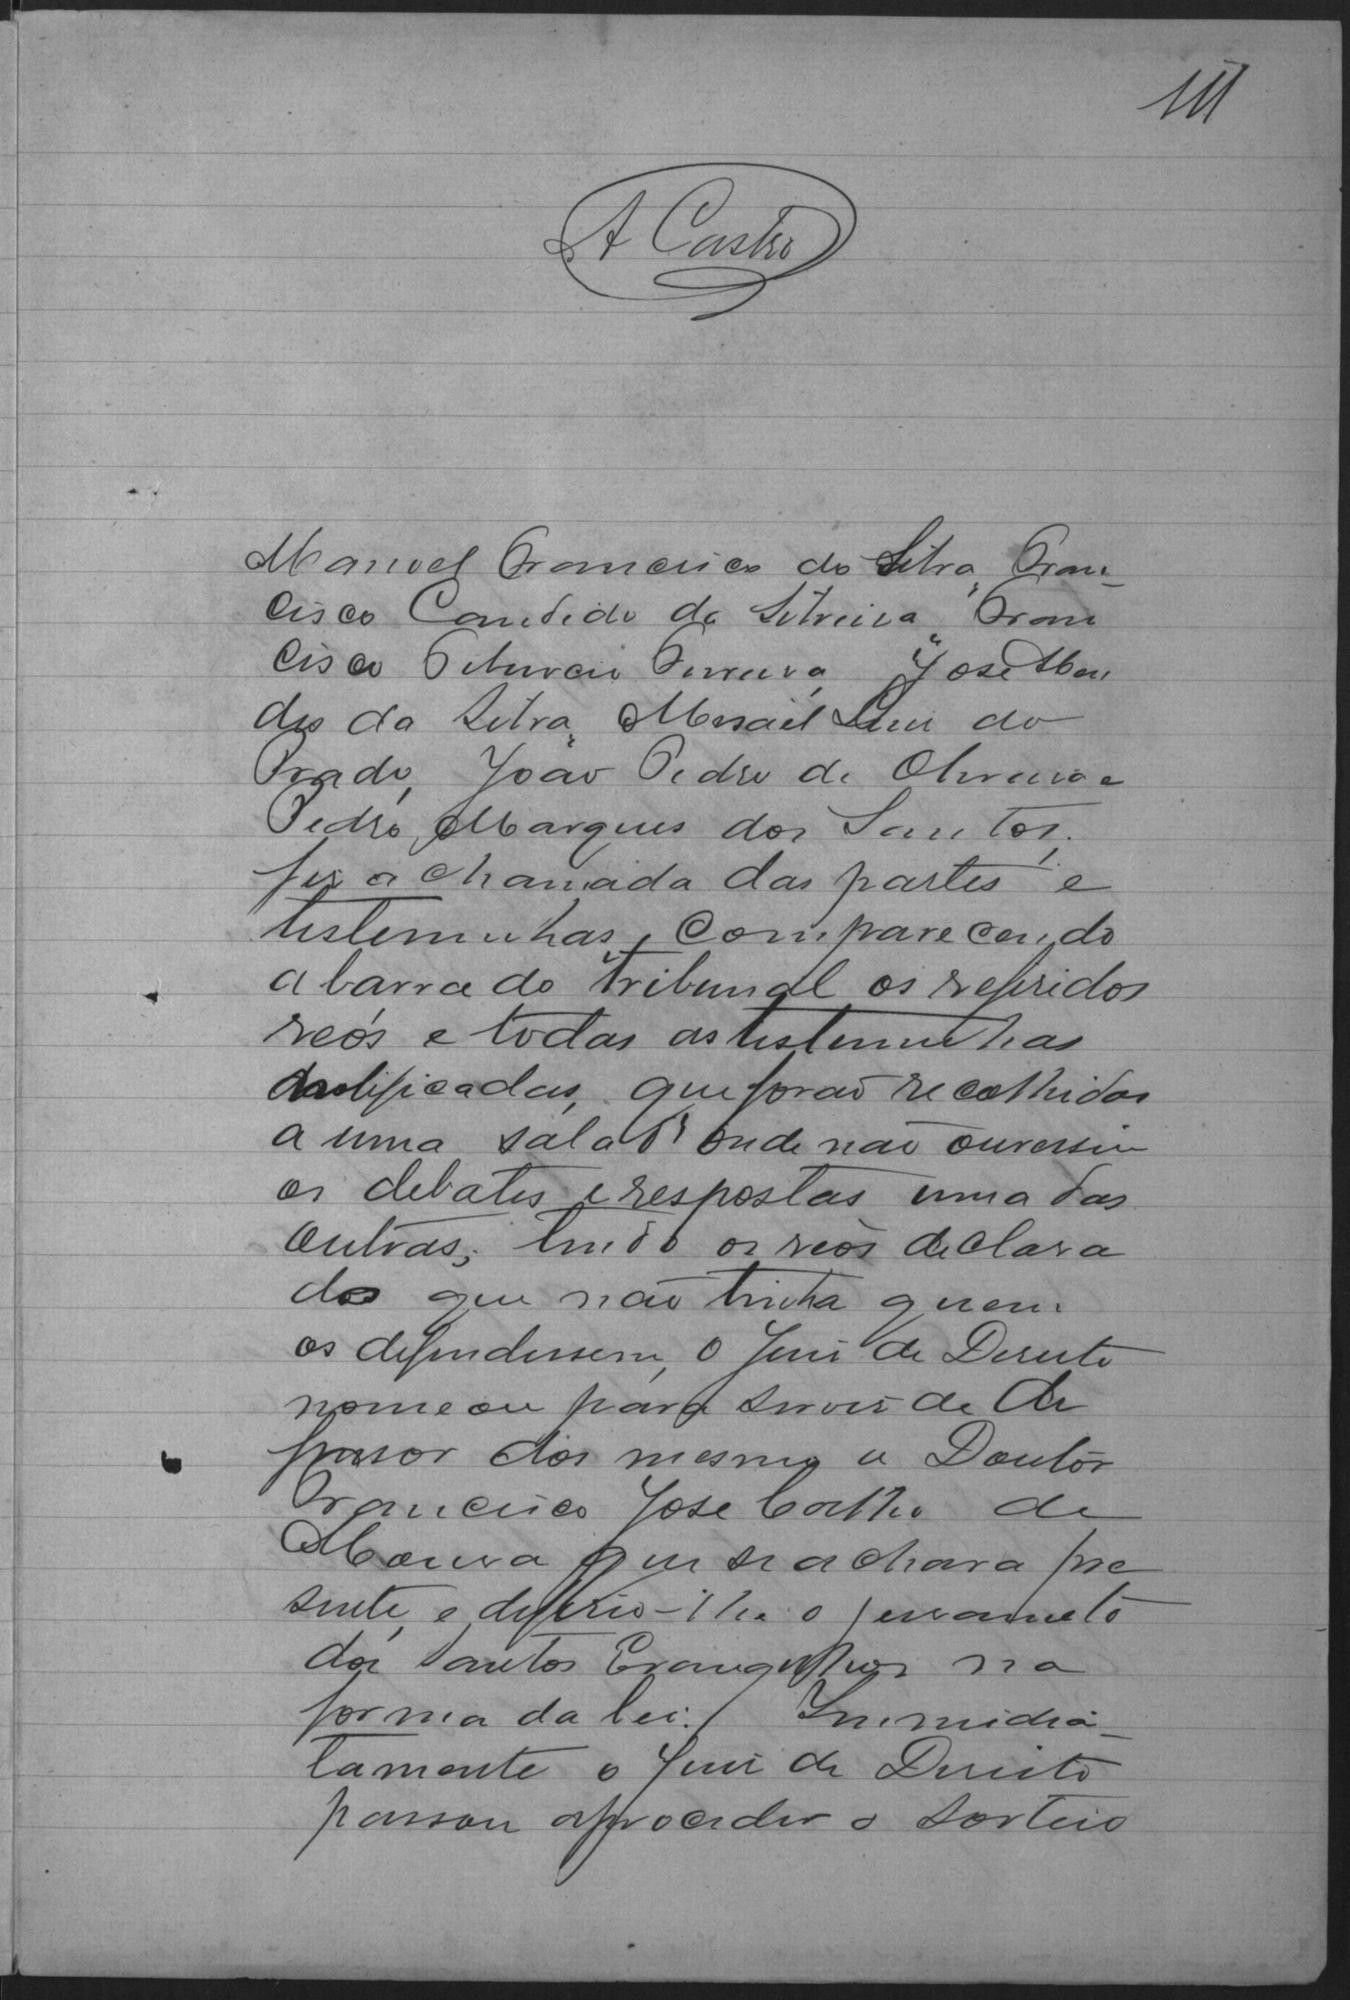 111
A Castro
Manoel Francisco da Silva, Fran-
cisco Candido da Silveira, Fran
cisco Tiburcio Ferreira, José Men
des da Silva, Misael Luis do
Prado, João Pedro de Oliveira e
Pedro Marques dos Santos,
fez a chamada das partes e
testemunhas, comparecendo
a barra do tribunal os referidos
reós e todas as testemunhas
notificadas, que forão recolhidas
a uma sala d'onde não ouvissem
os debates e respostas uma das
outras; tendo os reós declara
do que não tinha quem
os defendessem, o Juis de Direito
nomeou para servir de de
fensor dos mesmo o Doutor
Francisco José Coelho de
Moura que se achava pre
sente, e deferio-lhe o juramento
dos Santos Evangelhos na
forma da lei. Immidia-
tamente o Juis de Direito
passou a proceder o sorteio